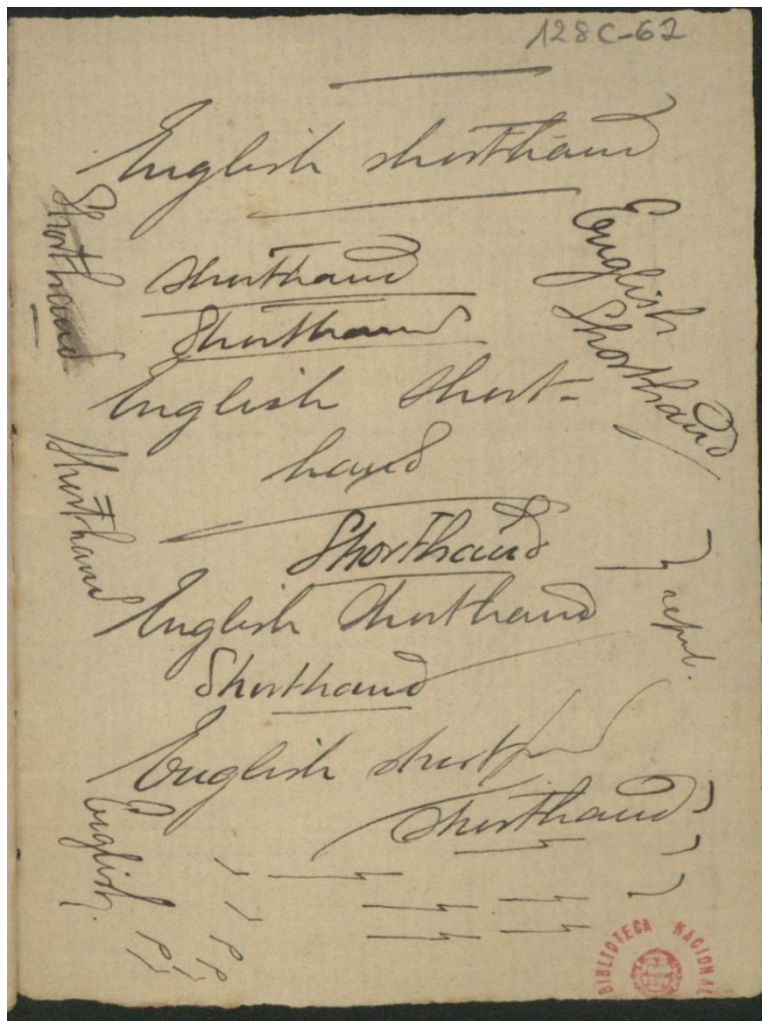 128C-62
English shorthand
Shorthand
English
Shorthand
Shorthand
Shorthand
English Short-
hand
Shorthand
Shorthand
English Shorthand
Shorthand
English
Shorthand
English.
BIBLIOTECA NACIONAL